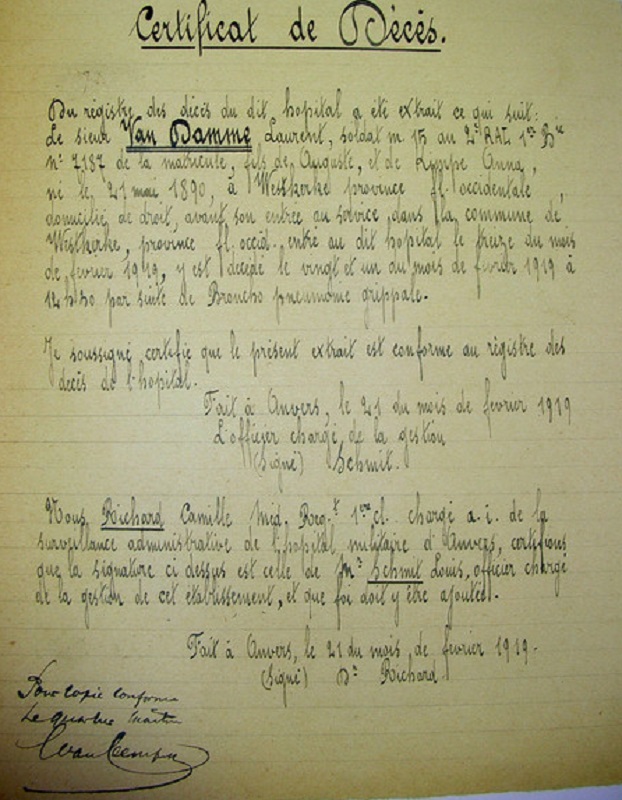 Certificat de Décès.
Du régistre des décès du dit hopital a été extrait ce qui suit:
Le sieur Van Damme Laurent, soldat m 15 au 2e RAL 1re Bie
n° 7187 de la matricule, fils de Auguste, et de Anna,
né le 21 mai 1890, à Westkerke province fl. occidentale,
domicilié de droit, avant son entrée au service, dans la commune de
Westkerke, province fl. occid. entré au dit hopital le treize du mois
de fevrier 1919, y est décédé le vingt et un du mois de fevrier 1919 à
12 h 30 par suite de Broncho pneumonie grippale.
Je soussigné certifie que le présent extrait est conforme au régistre des
décès de l'hopital.
Fait à Anvers, le 21 du mois de fevrier 1919
L'officier chargé de la gestion
(Signé) Schmit.
Nous Richard Camille Méd. Reg.t 1re cl. chargé a. i. de la
surveillance administrative de l'hopital militaire d'Anvers, certifions
que la signature ci dessus est celle de Mr Schmit Louis, officier chargé
de la gestion de cet établissement, et que foi doit y être ajoutée.
Fait à Anvers, le 21 du mois de fevrier 1919.
(Signé) Dr Richard
Pour copie conforme
Le quartier maître